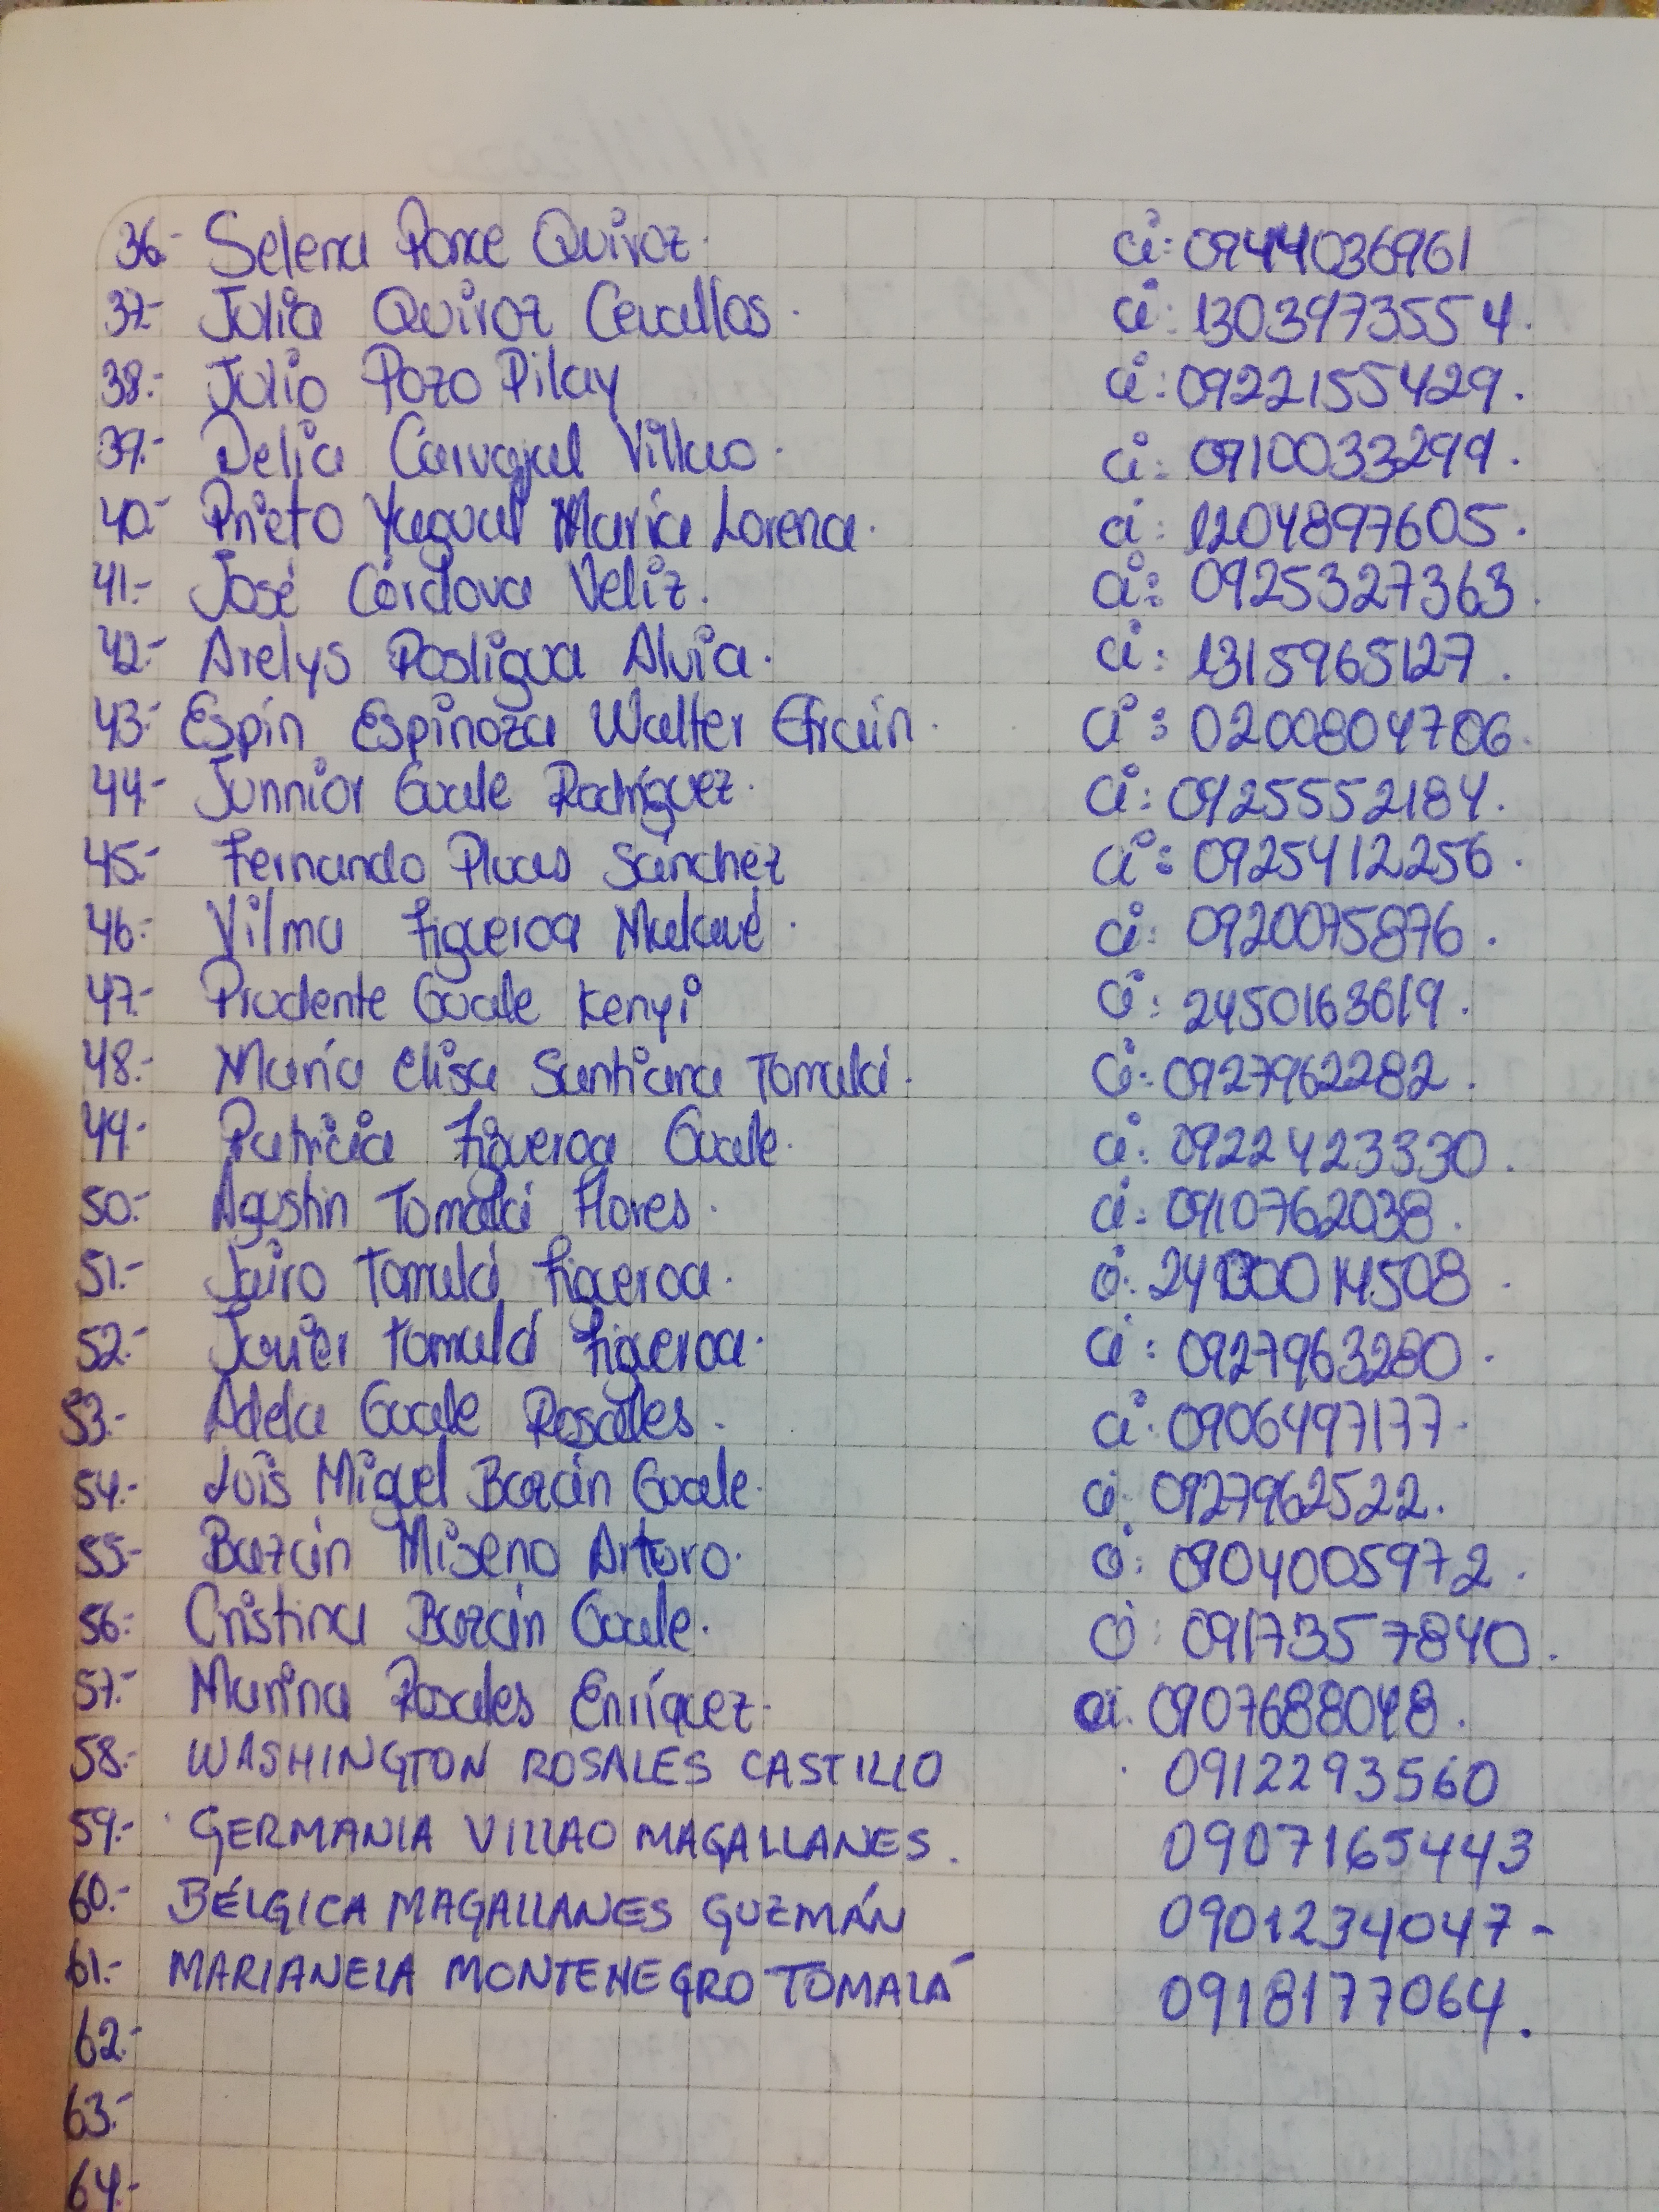 36.- Selena Ponce Quiroz. ci: 0944036961
37.- Julia Quiroz Cevallos. ci: 1303973554.
38.- Julio Pozo Pilay ci: 0922155429.
39.- Delia Carvajal Villao. ci: 0910033299.
40.- Prieto Yagual María Lorena. ci: 1204897605.
41.- José Córdova Veliz. ci: 0925327363.
42.- Arelys Posligua Alvia. ci: 1315965127.
43.- Espín Espinoza Walter Efraín. ci: 0200804706.
44.- Junnior Guale Rodríguez. ci: 0925552184.
45.- Fernando Pluas Sánchez ci: 0925412256.
46.- Vilma Figueroa Malavé. ci: 0920075876.
47.- Prudente Guale Kenyi ci: 2450163619.
48.- María Elisa Santiana Tomalá. ci: 0927962282.
49.- Patricia Figueroa Guale. ci: 0922423330.
50.- Agustín Tomalá Flores. ci: 0910762038.
51.- Jairo Tomalá Figueroa. ci:
52.- Javier Tomalá Figueroa. ci: 0927963280.
53.- Adela Guale Rosales. ci: 0906497177.
54.- Luis Miguel Bazán Guale. ci: 0927962522.
55.- Bazán Miseno Arturo. ci: 0904005972.
56.- Cristina Bazán Guale. ci: 0917357840.
57.- Marina Rosales Enríquez. ci. 0907688048.
58.- WASHINGTON ROSALES CASTILLO . 0912293560
59.- GERMANIA VILLAO MAGALLANES. 0907165443
60.- BÉLGICA MAGALLANES GUZMÁN 0901234047-
61.- MARIANELA MONTENEGRO TOMALÁ 0918177064.
62.-
63.-
64.-